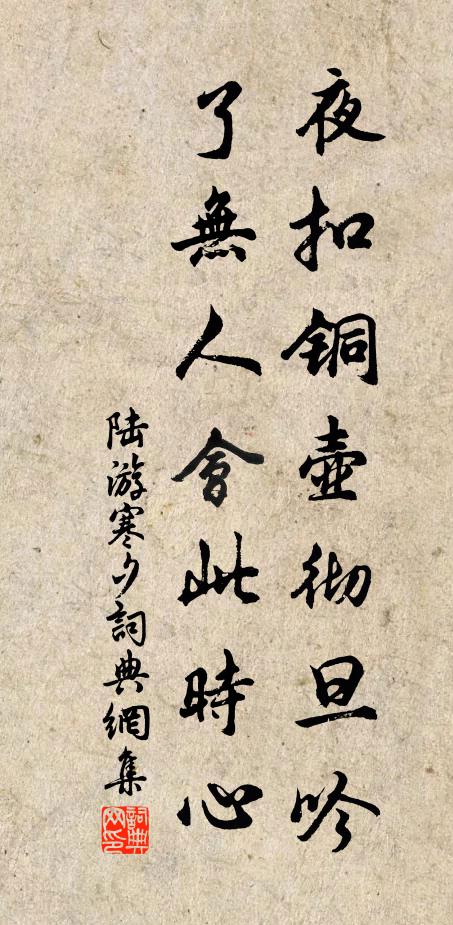 夜扣铜壶彻旦吟
了無人會此時心
陆游寒夕詞典網集
詞典网印